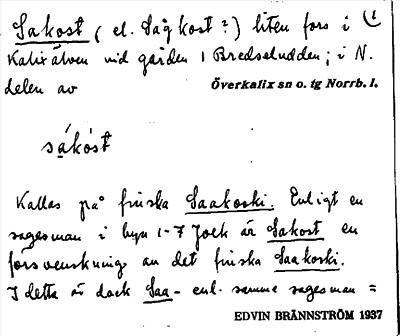 Sakost (el. Såg kost?) liten fors i
Kalixälven vid gården 1 Bredseludden; i N.
delen av Överkalix sn o. tg Norrb. l.
sákòst
Kallas på finska Saakoski. Enligt en
sagesman i byn 1-7 Jock är Sakost en
försvenskning av det finska Saakoski.
I detta är dock Saa- enl. samme sagesman =
EDVIN BRÄNNSTRÖM 1937